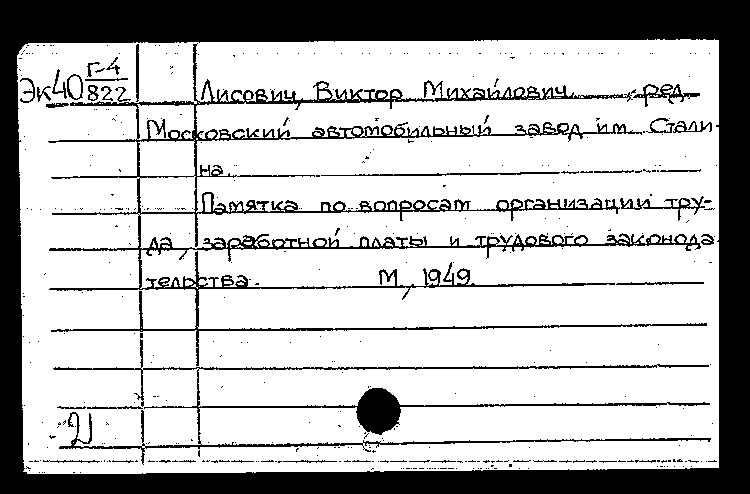 Эк40 Г-4
822
Лисович, Виктор Михайлович , ред.
Московский автомобильный завод им. Стали-
на.
Памятка по вопросам организации тру-
да, заработной платы и трудового законода-
тельства. М., 1949.